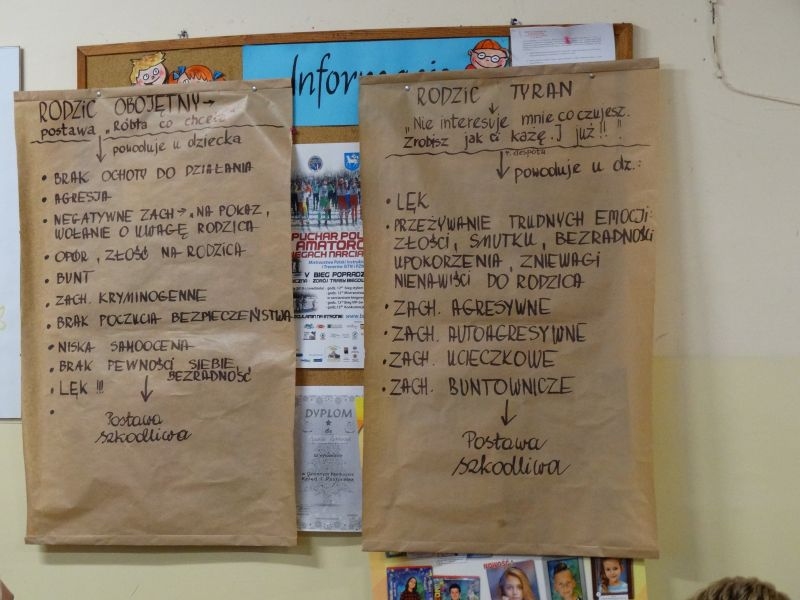 Informacje
RODZIC OBOJĘTNY →
postawa „Róbta co chceta"
powoduje u dziecka
• BRAK OCHOTY DO DZIAŁANIA
• AGRESJA
• NEGATYWNE ZACH → „NA POKAZ,
WOŁANIE O UWAGĘ RODZICA
• OPÓR, ZŁOŚĆ NA RODZICA
• BUNT
• ZACH. KRYMINOGENNE
• BRAK POCZUCIA BEZPIECZEŃSTWA
• NISKA SAMOOCENA
• BRAK PEWNOŚCI SIEBIE,
BEZRADNOŚĆ
• LĘK !!!
•
Postawa
szkodliwa
PUCHAR POL
AMATORÓ
BIEGACH NARCIA
V BIEG POPRADZ
DYPLOM
dla
RODZIC TYRAN
„Nie interesuje mnie co czujesz.
Zrobisz jak ci każę. I już!!"
powoduje u dz.:
• LĘK
• PRZEŻYWANIE TRUDNYCH EMOCJI:
ZŁOŚCI, SMUTKU, BEZRADNOŚCI
UPOKORZENIA, ZNIEWAGI
NIENAWIŚCI DO RODZICA
• ZACH. AGRESYWNE
• ZACH. AUTOAGRESYWNE
• ZACH. UCIECZKOWE
• ZACH. BUNTOWNICZE
Postawa
szkodliwa
NOWOŚĆ!